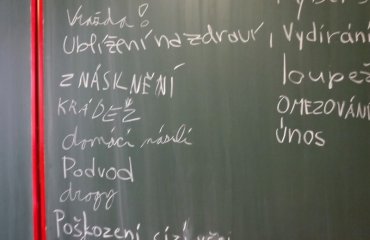 Vražda!
Ublížení na zdraví,
ZNÁSKNĚNÍ
KRÁDEŽ
domácí násilí
Podvod
drogy
Poškození cizí věci
Vydírání
loupež
OMEZOVÁNÍ
únos